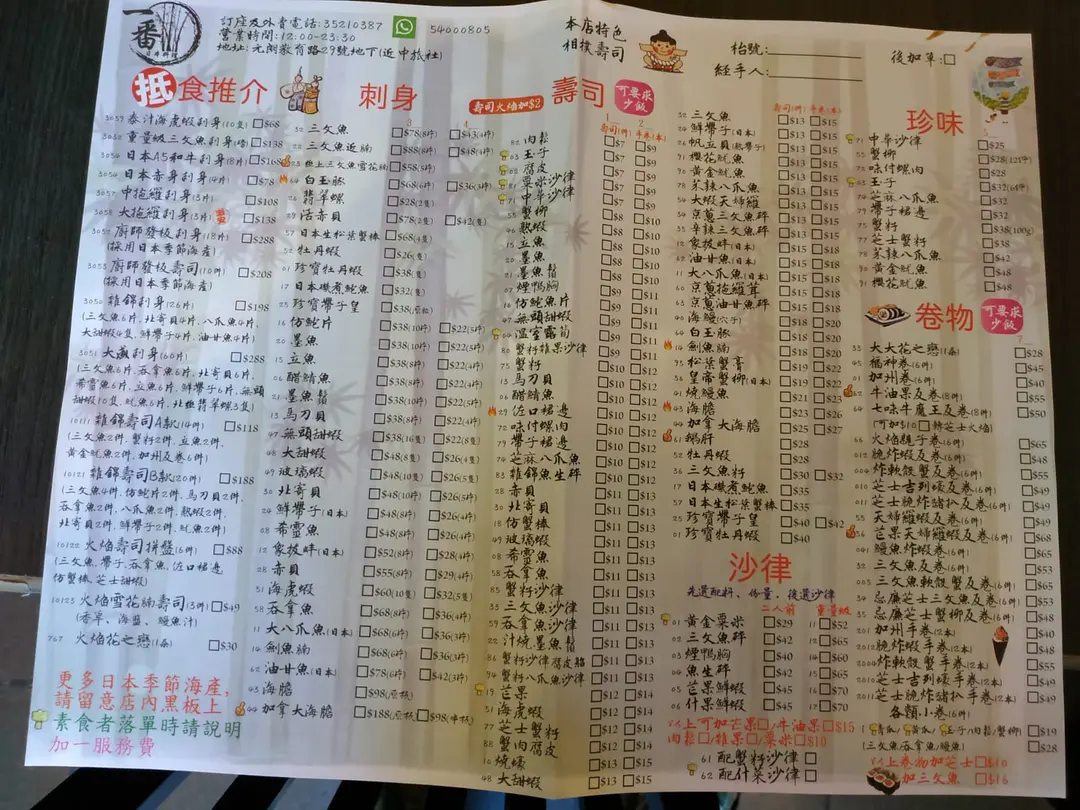 一番
日本料理
訂座及外賣電話:35210387
54000805
營業時間:12:00-23:30
地址:元朗教育路29號地下(近中旅社)
本店特色
相撲壽司
枱號:
經手人:
後加單:
抵食推介
3059 泰汁海虎蝦刺身(10隻) $68
3052 重量級三文魚刺身 $138
3056 日本A5和牛刺身(8片) $168
3054 日本赤身刺身(4片) $78
3057 中拖羅刺身(3片) $108
3058 大拖羅刺身(3片) $138
3052 廚師發板刺身(18片) $288
(採用日本季節海產)
3053 廚師發板壽司(10件) $208
(採用日本季節海產)
3050 雜錦刺身(26片) $198
(三文魚6片,北寄貝4片,八爪魚4片,
大甜蝦4隻,鮮帶子4片,油甘魚4片)
3051 大瘋刺身(60片) $288
(三文魚6片,吞拿魚6片,北寄貝6片,
希靈魚6片,立魚6片,鮮帶子6片,無頭
甜蝦10隻,魷魚6片,北極翡翠螺3隻)
10111 雜錦壽司A款(14件) $118
(三文魚2件,蟹籽2件,立魚2件,
黃金魷魚2件,加州及卷6件)
10121 雜錦壽司B款(20件) $188
(三文魚4件,仿鮑片2件,馬刀貝2件,
吞拿魚2件,八爪魚2件,熟蝦2件,
北寄貝2件,鮮帶子2件,魷魚2件)
10122 火焰壽司拼盤(6件) $88
(三文魚,帶子,吞拿魚,佐口裙邊
仿蟹棒,芝士甜蝦)
10123 火焰雪花腩壽司(3件) $49
(香草、海鹽、鰻魚汁)
767 火焰花之戀(1条) $30
更多日本季節海產,
請留意店內黑板上
素食者落單時請說明
加一服務費
刺身
32 三文魚 $78(8片) $43(4片)
22 三文魚近腩 $88(8片) $48(4片)
23 極上三文魚雪花腩 $58(5片)
64 白玉豚 $68(6片) $36(3片)
26 翡翠螺 $28(2隻)
29 活赤貝 $78(2隻) $42(1隻)
37 日本生松葉蟹棒 $68(4隻)
52 牡丹蝦 $26(1隻)
01 珍寶牡丹蝦 $38(1隻)
17 日本磯煮鮑魚 $32(1隻)
25 珍寶帶子皇 $38(原粒)
16 仿鮑片 $38(10片) $22(5片)
20 墨魚 $38(8片) $22(4片)
15 立魚 $38(8片) $22(4片)
06 醋鯖魚 $38(8片) $22(4片)
21 墨魚鬚 $38(8片) $22(4片)
13 馬刀貝 $38(10片) $22(5片)
47 無頭甜蝦 $38(16隻) $22(8隻)
48 大甜蝦 $48(8隻) $26(4隻)
49 玻璃蝦 $48(10隻) $26(5隻)
30 北寄貝 $48(10片) $26(5片)
24 鮮帶子(日本) $48(8片) $26(4片)
08 希靈魚 $48(8片) $26(4片)
12 象拔蚌(日本) $52(8片) $28(4片)
28 赤貝 $55(8片) $29(4片)
51 海虎蝦 $60(10隻) $32(5隻)
58 吞拿魚 $68(8片) $36(4片)
11 大八爪魚(日本) $68(6片) $36(3片)
14 劍魚腩 $68(6片) $36(3片)
62 油甘魚(日本) $78(8片) $42(4片)
43 海膽 $98(原板)
44 加拿大海膽 $188(原板) $98(半板)
壽司火焰加$2
壽司
可要求
少飯
壽司(件) 手卷(本)
82 肉鬆 $7 $9
03 玉子 $7 $9
02 腐皮 $7 $9
81 粟米沙律 $7 $9
71 中華沙律 $7 $9
35 蟹柳 $8 $10
46 熟蝦 $8 $10
15 立魚 $8 $10
20 墨魚 $8 $10
21 墨魚鬚 $8 $10
07 煙鴨胸 $9 $11
16 仿鮑魚片 $9 $11
47 無頭甜蝦 $9 $11
04 溫室露筍 $9 $11
80 蟹籽雜果沙律 $9 $11
75 蟹籽 $10 $12
13 馬刀貝 $10 $12
06 醋鯖魚 $10 $12
29 佐口裙邊 $10 $12
72 味付螺肉 $10 $12
79 帶子裙邊 $10 $12
74 芝麻八爪魚 $10 $12
83 雜錦魚生碎 $10 $12
28 赤貝 $11 $13
30 北寄貝 $11 $13
18 仿蟹棒 $11 $13
49 玻璃蝦 $11 $13
08 希靈魚 $11 $13
58 吞拿魚 $11 $13
85 蟹籽沙律 $11 $13
33 三文魚沙律 $11 $13
59 吞拿魚沙律 $11 $13
22 汁燒墨魚鬚 $11 $13
86 蟹籽沙律腐皮 $11 $13
94 蟹籽八爪魚沙律 $11 $13
19 芒果 $12 $14
51 海虎蝦 $12 $14
77 芝士蟹籽 $12 $14
88 蟹肉腐皮 $12 $14
10 燒蠔 $13 $15
48 大甜蝦 $13 $15
壽司(件) 手卷(本)
32 三文魚 $13 $15
24 鮮帶子(日本) $13 $15
26 帆立貝(熟帶子) $13 $15
91 櫻花魷魚 $13 $15
90 黃金魷魚 $13 $15
78 芥辣八爪魚 $13 $15
54 大蝦天婦羅 $13 $15
34 京蔥三文魚碎 $13 $15
35 辛辣三文魚碎 $13 $15
12 象拔蚌(日本) $15 $18
62 油甘魚(日本) $15 $18
11 大八爪魚(日本) $15 $18
60 京蔥拖羅茸 $15 $18
63 京蔥油甘魚碎 $15 $18
40 海鰻(穴子) $18 $20
64 白玉豚 $18 $20
14 劍魚腩 $18 $20
93 松葉蟹膏 $18 $20
36 皇帝蟹柳(日本) $19 $22
41 燒鰻魚 $21 $23
43 海膽 $23 $26
44 加拿大海膽 $25 $27
61 鵝肝 $28
52 牡丹蝦 $28
36 三文魚籽 $30 $32
17 日本磯煮鮑魚 $35
37 日本生松葉蟹棒 $35
25 珍寶帶子皇 $40 $42
01 珍寶牡丹蝦 $40
沙律
先選配料、份量、後選沙律
二人前 重量級
01 黃金粟米 $29 11 $52
02 三文魚碎 $42 12 $65
03 煙鴨胸 $40 14 $60
04 魚生碎 $42 15 $65
05 芒果鮮蝦 $45 16 $70
06 什果鮮蝦 $45 17 $70
以上可加芒果/牛油果$15
肉鬆/雜果/粟米$10
61 配蟹籽沙律
62 配什菜沙律
珍味
71 中華沙律 $25
35 蟹柳 $28(12件)
72 味付螺肉 $32
03 玉子 $32(6件)
74 芝麻八爪魚 $32
79 帶子裙邊 $32
75 蟹籽 $38(100g)
77 芝士蟹籽 $38
78 芥辣八爪魚 $38
90 黃金魷魚 $48
91 櫻花魷魚 $48
卷物
可要求
少飯
33 大大花之戀(1条) $28
05 福神卷(6件) $45
01 加州卷(6件) $40
62 牛油果及卷(8件) $55
64 七味牛魔王及卷(8件) $50
(可加$10轉芝士火焰)
66 火焰題子卷(6件) $65
012 脆炸蝦及卷(6件) $48
004 炸軟殼蟹及卷(6件) $55
010 芝士吉列蠔及卷(6件) $49
011 芝士脆炸豬扒及卷(6件) $49
55 天婦羅蝦及卷(6件) $53
56 芒果天婦羅蝦及卷(6件) $68
041 鰻魚炸蝦卷(6件) $65
32 三文魚及卷(6件) $53
003 三文魚軟殼蟹及卷(6件) $65
34 忌廉芝士三文魚及卷(6件) $53
35 忌廉芝士蟹柳及卷(6件) $48
201 加州手卷(2本) $40
2012 脆炸蝦手卷(2本) $48
2004 炸軟殼蟹手卷(2本) $55
2010 芝士吉列蠔手卷(2本) $49
2011 芝士脆炸豬扒手卷(2本) $49
各類小卷(6件)
(青瓜/黃瓜/玉子/肉鬆/蟹柳) $19
(三文魚/吞拿魚/鰻魚) $28
以上卷物加芝士$10
加三文魚$16